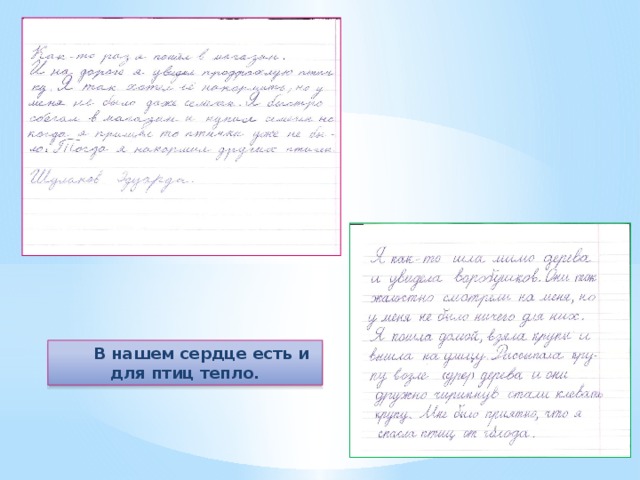 Как-то раз я пошёл в магазин.
И на дороге я увидел продрогшую птич-
ку. Я так хотел её накормить, но у
меня не было даже семечек. Я быстро
сбегал в магазин и купил семечек но
когда я пришёл то птички уже не бы-
ло. Тогда я накормил других птичек
Шуланов Эдуарда.
Я как-то шла мимо дерева
и увидела воробушков. Они так
жалостно смотрели на меня, но
у меня не было ничего для них.
Я пошла домой, взяла крупы и
вышла на улицу. Рассыпала кру-
пу возле дерева и они
дружно чирикнув стали клевать
крупу. Мне было приятно, что я
спасла птиц от голода.
В нашем сердце есть и
для птиц тепло.